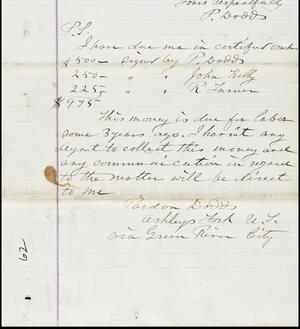 Yours respectfully
P. Dodds
P.S.
I have due me in certified vouch
$500— signed by P. Dodds
250— " " John Kelly
225— " " R Turner
$975—
This money is due for labor
some 3 years ago. I hav'nt any
agent to collect this money and
any communication in regard
to the matter will be direct
to me
Pardon Dodds
Ashleys Fork U.T.
via Green River City
62